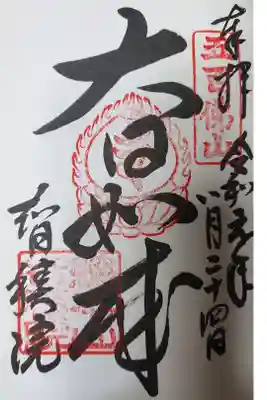 奉拝 令和元年
八月二十四日
五百佛山
大日如来
智積院